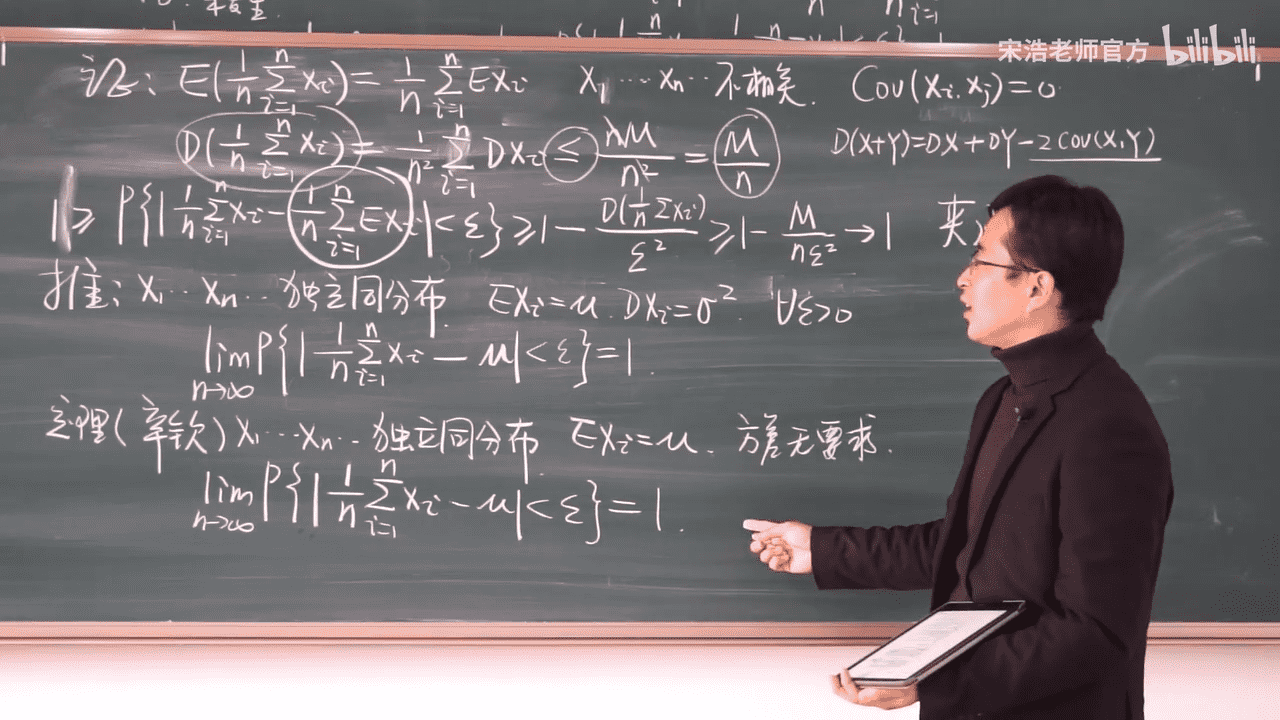 宋浩老师官方 bilibili
证: E(1/n ∑_{i=1}^{n} Xi) = 1/n ∑_{i=1}^{n} EXi X1 ⋯ Xn ⋯ 不相关. Cov(Xi, Xj)=0
D(1/n ∑_{i=1}^{n} Xi) = 1/n² ∑_{i=1}^{n} DXi ≤ nM/n² = M/n D(X+Y)=DX+DY-2Cov(X,Y)
1 ≥ P{|1/n ∑_{i=1}^{n} Xi - 1/n ∑_{i=1}^{n} EXi| < ε} ≥ 1 - D(1/n ∑Xi)/ε² ≥ 1 - M/nε² → 1 夹
推: X1 ⋯ Xn ⋯ 独立同分布. EXi=μ. DXi=σ². ∀ε>0
lim_{n→∞} P{|1/n ∑_{i=1}^{n} Xi - μ| < ε} = 1.
定理(辛钦) X1 ⋯ Xn ⋯ 独立同分布. EXi=μ. 方差无要求.
lim_{n→∞} P{|1/n ∑_{i=1}^{n} Xi - μ| < ε} = 1.